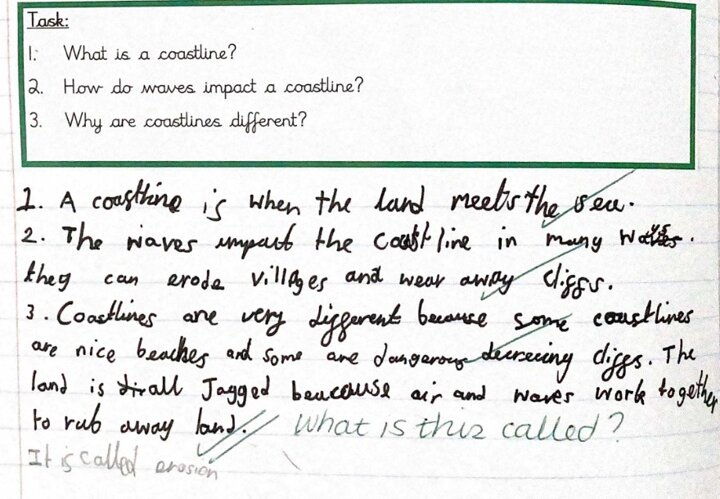 Task:
1: What is a coastline?
2. How do waves impact a coastline?
3. Why are coastlines different?
1. A coastline is when the land meets the sea.
2. The waves impact the coastline in many ways.
they can erode villages and wear away cliffs.
3. Coastlines are very different because some coastlines
are nice beaches and some are dangerous cliffs. The
land is all Jagged beucause air and waves work together
to rub away land. What is this called?
It is called erosion